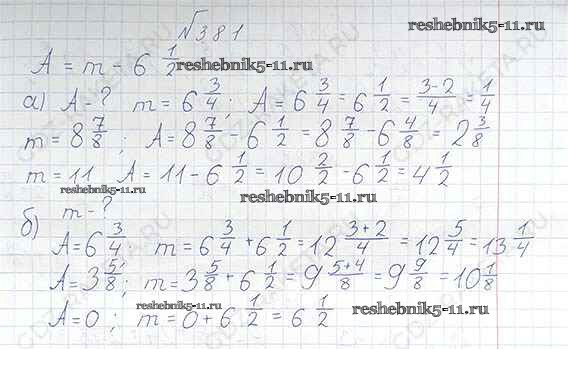 №381
reshebnik5-11.ru
A = m - 6 1/2
reshebnik5-11.ru
а) A - ? m = 6 3/4; A = 6 3/4 = 6 1/2 = 3-2/4 = 1/4
m = 8 7/8; A = 8 7/8 - 6 1/2 = 8 7/8 - 6 4/8 = 2 3/8
m = 11 A = 11 - 6 1/2 = 10 2/2 - 6 1/2 = 4 1/2
reshebnik5-11.ru
reshebnik5-11.ru
б) m - ?
A = 6 3/4 m = 6 3/4 + 6 1/2 = 12 3+2/4 = 12 5/4 = 13 1/4
A = 3 5/8; m = 3 5/8 + 6 1/2 = 9 5+4/8 = 9 9/8 = 10 1/8
reshebnik5-11.ru
reshebnik5-11.ru
A = 0; m = 0 + 6 1/2 = 6 1/2